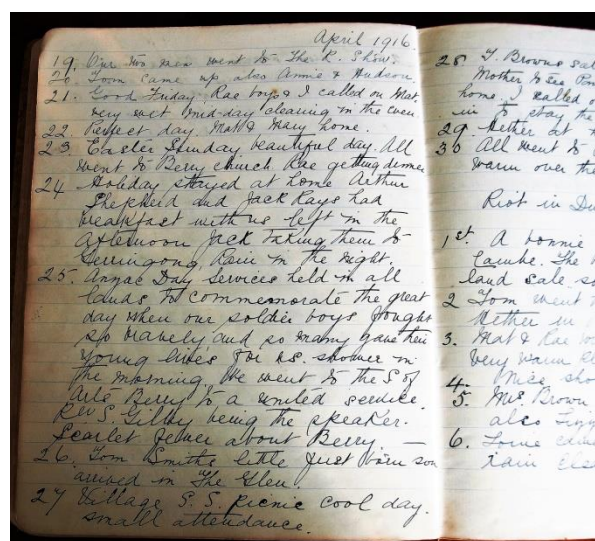 April 1916.
19. Our two men went to The R. Show.
20. Tom came up also Annie & Hudson.
21. Good Friday. Rae boys & I called on Mat.
very wet mid-day clearing in the even
22. Perfect day. Mat & Mary home.
23 Easter Sunday beautiful day. All
went to Berry church. Rae getting dinner
24 Holiday stayed at home Arthur
Shepherd and Jack Kays had
breakfast with us left in the
afternoon Jack taking them to
Gerringong, Rain in the night.
25. Anzac Day Services held in all
lands to commemorate the great
day when our soldier boys fought
so bravely and so many gave their
young lives for us. shower in
the morning, We went to the S of
Arts Berry to a united service.
Rev S. Gilby being the speaker.
Scarlet Fever about Berry —
26. Tom Smiths little first born son
arrived in The Glen.
27 Village S. S. picnic cool day.
small attendance.
28 T. Browns sal
Mother to see
home. I called o
in to stay the
29. Hether at
30 All went to
warm over the
Riot in Du
1st. A bonnie
Lambe. The
land sale. so
2 Tom went
Hether in
3. Mat & Rae
very warm
4. Nice sho
5. Mrs. Brown
also
6.
rain Else